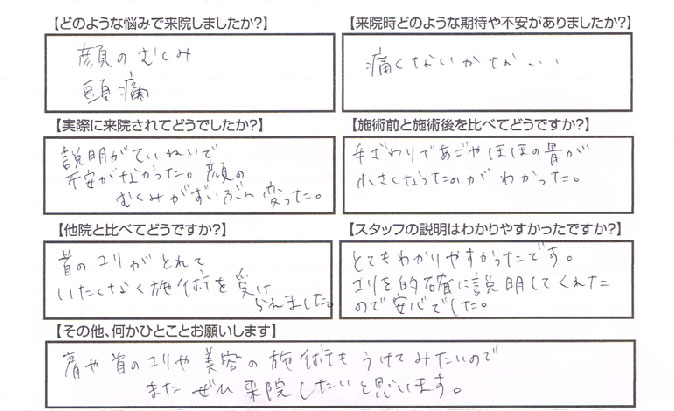 【どのような悩みで来院しましたか?】
顔のむくみ
頭痛
【来院時どのような期待や不安がありましたか?】
痛くないかな・・・
【実際に来院されてどうでしたか?】
説明がていねいで
不安がなかった。顔の
むくみがずいぶん変った。
【施術前と施術後を比べてどうですか?】
手ざわりであごやほほの骨が
小さくなったのがわかった。
【他院と比べてどうですか?】
首のコリがとれて
いたくなく施術を受け
られました。
【スタッフの説明はわかりやすかったですか?】
とてもわかりやすかったです。
コリを的確に説明してくれた
ので安心でした。
【その他、何かひとことお願いします】
肩や首のコリや美容の施術もうけてみたいので
またぜひ来院したいと思います。